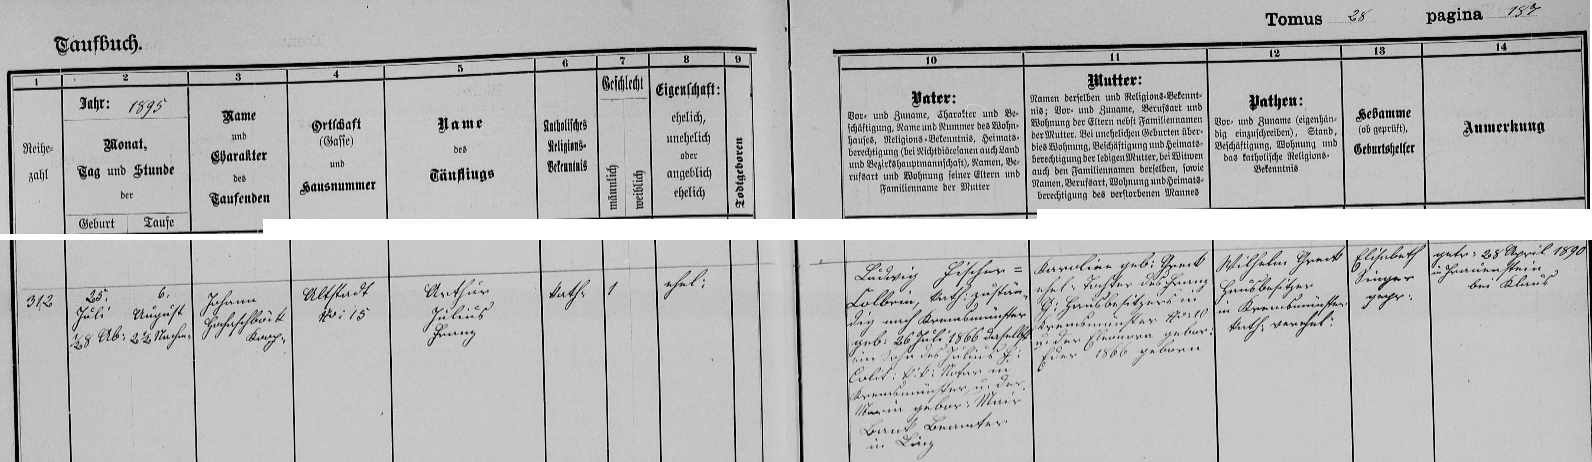 Taufbuch.
Tomus 28 pagina 187
1 2 3 4 5 6 7 8 9
10 11 12 13 14
Reihe-
zahl
Jahr: 1895
Monat,
Tag und Stunde
der
Geburt Taufe
Name
und
Charakter
des
Taufenden
Ortschaft
(Gasse)
und
Hausnummer
Name
des
Täuflings
Katholisches
Religions-
Bekenntnis
Geschlecht
männlich
weiblich
Eigenschaft:
ehelich,
unehelich
oder
angeblich
ehelich
Todtgeboren
Vater:
Vor- und Zuname, Charakter und Be-
schäftigung, Name und Nummer des Wohn-
hauses, Religions-Bekenntnis, Heimats-
berechtigung (bei Nichtdiöcesanen auch Land
und Bezirkshauptmannschaft), Namen, Be-
rufsart und Wohnung seiner Eltern und
Familienname der Mutter
Mutter:
Namen derselben und Religions-Bekennt-
nis; Vor- und Zuname, Berufsart und
Wohnung der Eltern nebst Familiennamen
der Mutter. Bei unehelichen Geburten über-
dies Wohnung, Beschäftigung und Heimats-
berechtigung der ledigen Mutter, bei Witwen
auch den Familiennamen derselben, sowie
Namen, Berufsart, Wohnung und Heimats-
berechtigung des verstorbenen Mannes
Pathen:
Vor- und Zuname (eigenhän-
dig einzuschreiben), Stand,
Beschäftigung, Wohnung und
das katholische Religions-
Bekenntnis
Hebamme
(ob geprüft),
Geburtshelfer
Anmerkung
312
25.
Juli
½8 Ab:
6.
August
½2 Nachm.
Johann
Hahrschböck
Koop.
Altstadt
No: 15
Arthur
Julius
Franz
kath.
1
ehel:
Ludwig Fischer=
Colbrie, kath: zustän-
dig nach Kremsmünster
geb: 26 Juli 1866 daselbst
ein Sohn des Julius F:
Colb: k: k: Notar in
Kremsmünster, u: der
Maria gebor: Mair
Bank Beamter
in Linz
Karoline geb: Greck
ehel: Tochter des Franz
G: Hausbesitzers in
Kremsmünster No: 10
u: der Eleonora gebor:
Eder 1866 geboren
Wilhelm Greck
Hausbesitzer
in Kremsmünster
kath: verehel:
Elisabeth
Singer
gepr.
getr: 28 April 1890
in Frauenstein
bei Klaus